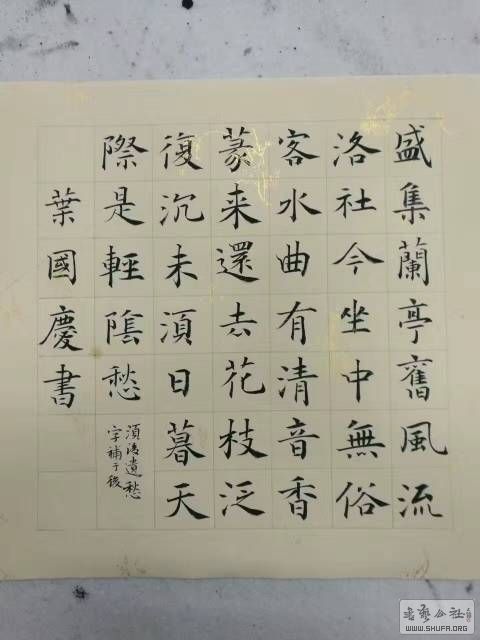 盛集蘭亭舊風流
洛社今坐中無俗
客水曲有清音香
篆来還去花枝泛
復沉未湏日暮天
際是輕陰愁
湏後遺愁
字補于後
葉國慶書
书艺公社
WWW.SHUFA.ORG